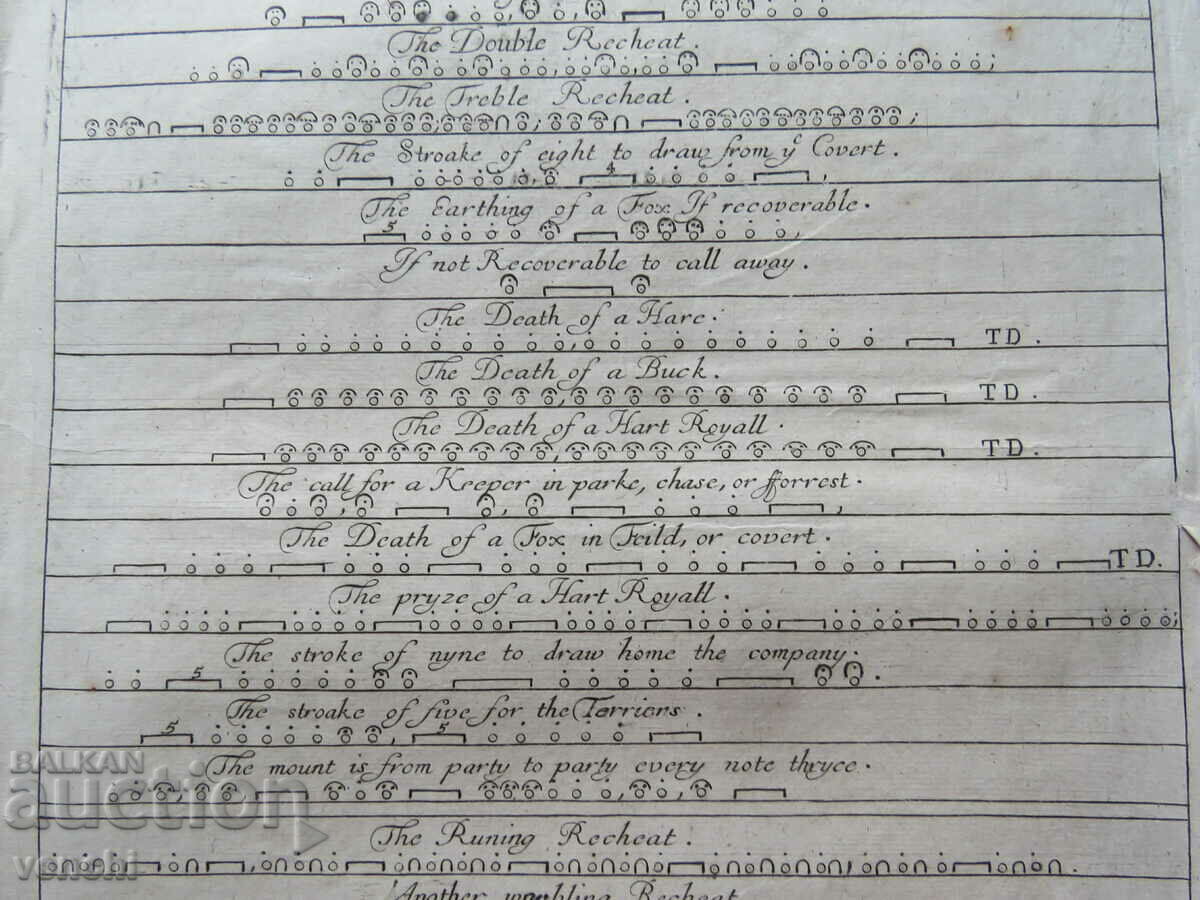 The Double Recheat.
The Treble Recheat.
The Stroake of eight to draw from yᵉ Covert.
4
The Earthing of a Fox If recoverable.
5
If not Recoverable to call away.
The Death of a Hare.
TD.
The Death of a Buck.
TD.
The Death of a Hart Royall.
TD.
The call for a Keeper in parke, chase, or fforrest.
The Death of a Fox in Feild, or covert.
TD.
The pryze of a Hart Royall.
The stroke of nyne to draw home the company.
5
The stroake of five for the Terriers.
5 5
The mount is from party to party every note thryce.
The Runing Recheat.
Another warbling Recheat
BALKAN
auction
venehi